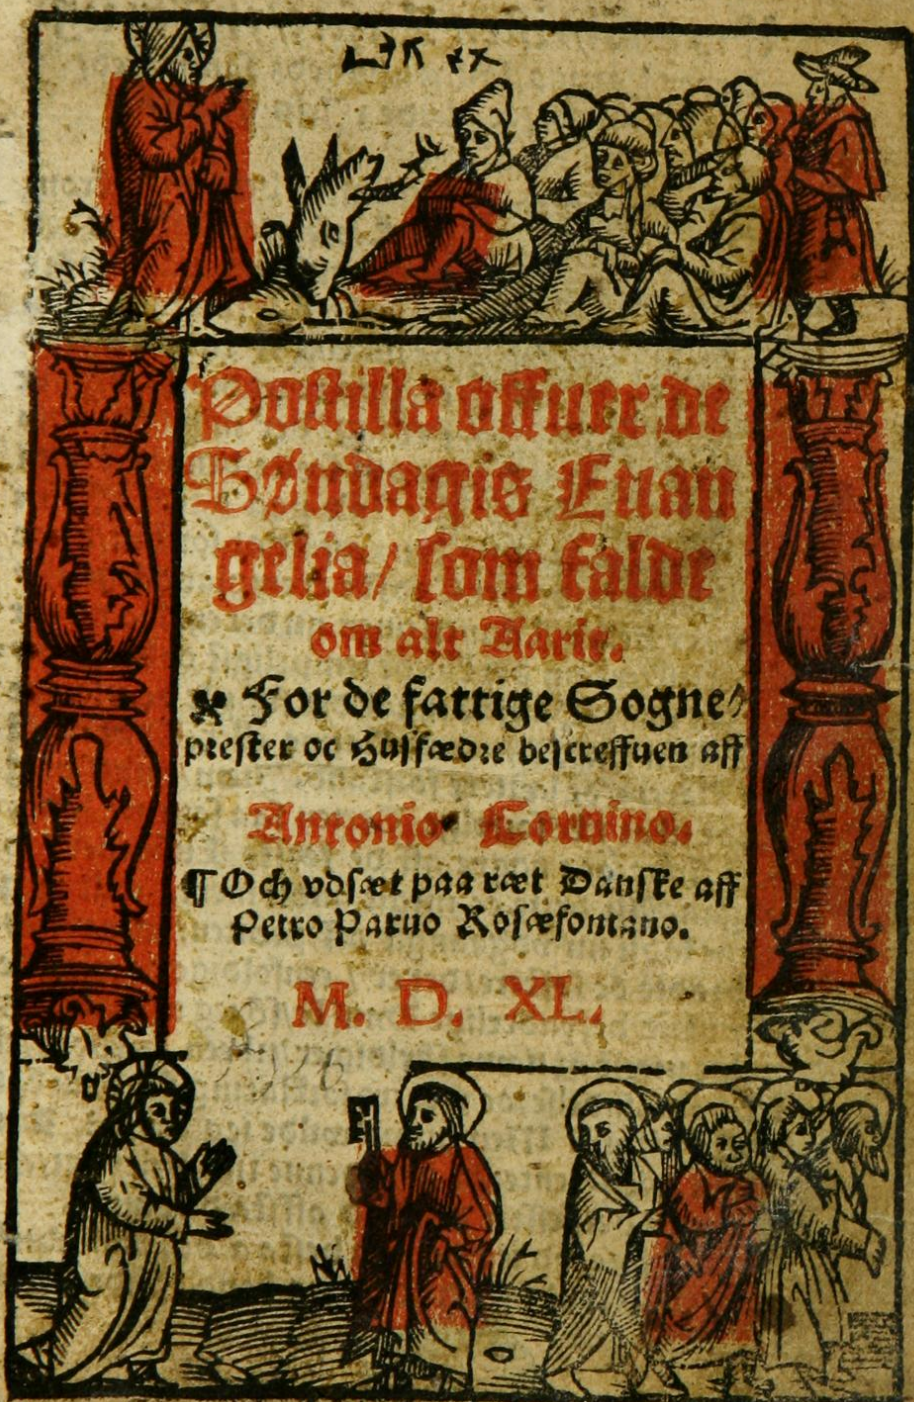 Postilla offuer de
Søndagis Euan
gelia/ som falde
om alt Aarit.
For de fattige Sogne⸗
prester oc Husfædre bescreffuen aff
Antonio Coruino.
¶Och vdsæt paa ræt Danske aff
Petro Paruo Rosæfontano.
M. D. XL.